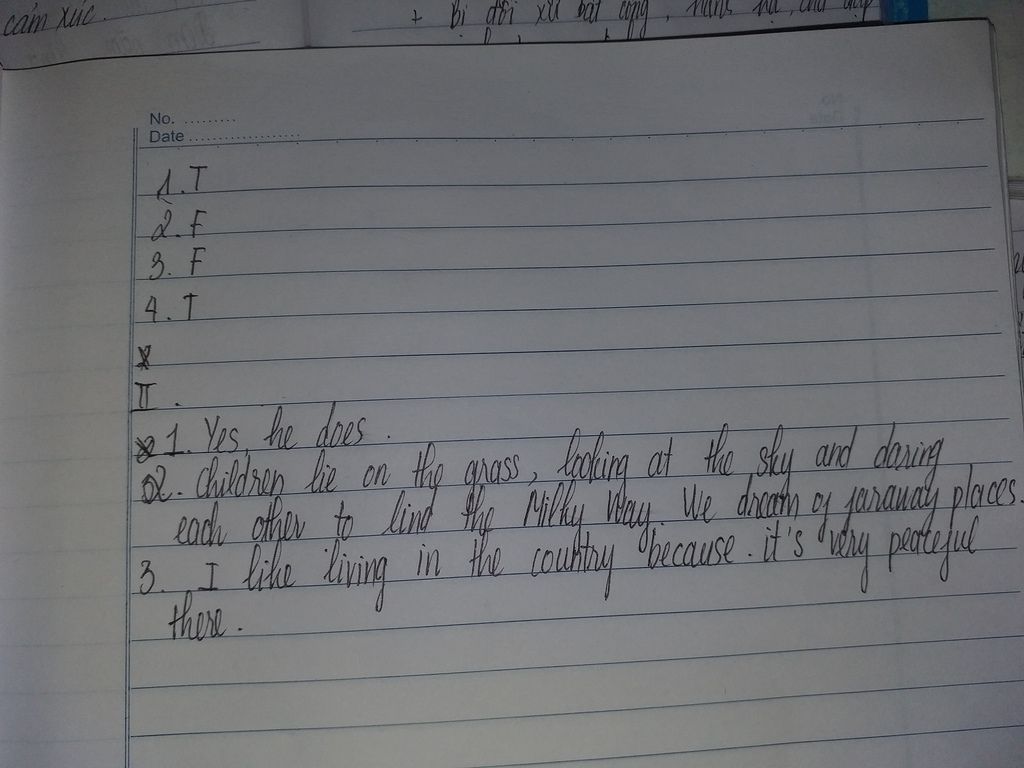 cảm xúc.
+ bị đối xử bất công,
No. .........
Date ...................
1. T
2. F
3. F
4. T
II.
1. Yes, he does.
2. children lie on the grass, looking at the sky and daring
each other to find the Milky Way. We dream of faraway places.
3. I like living in the country because. it's very peaceful
there.